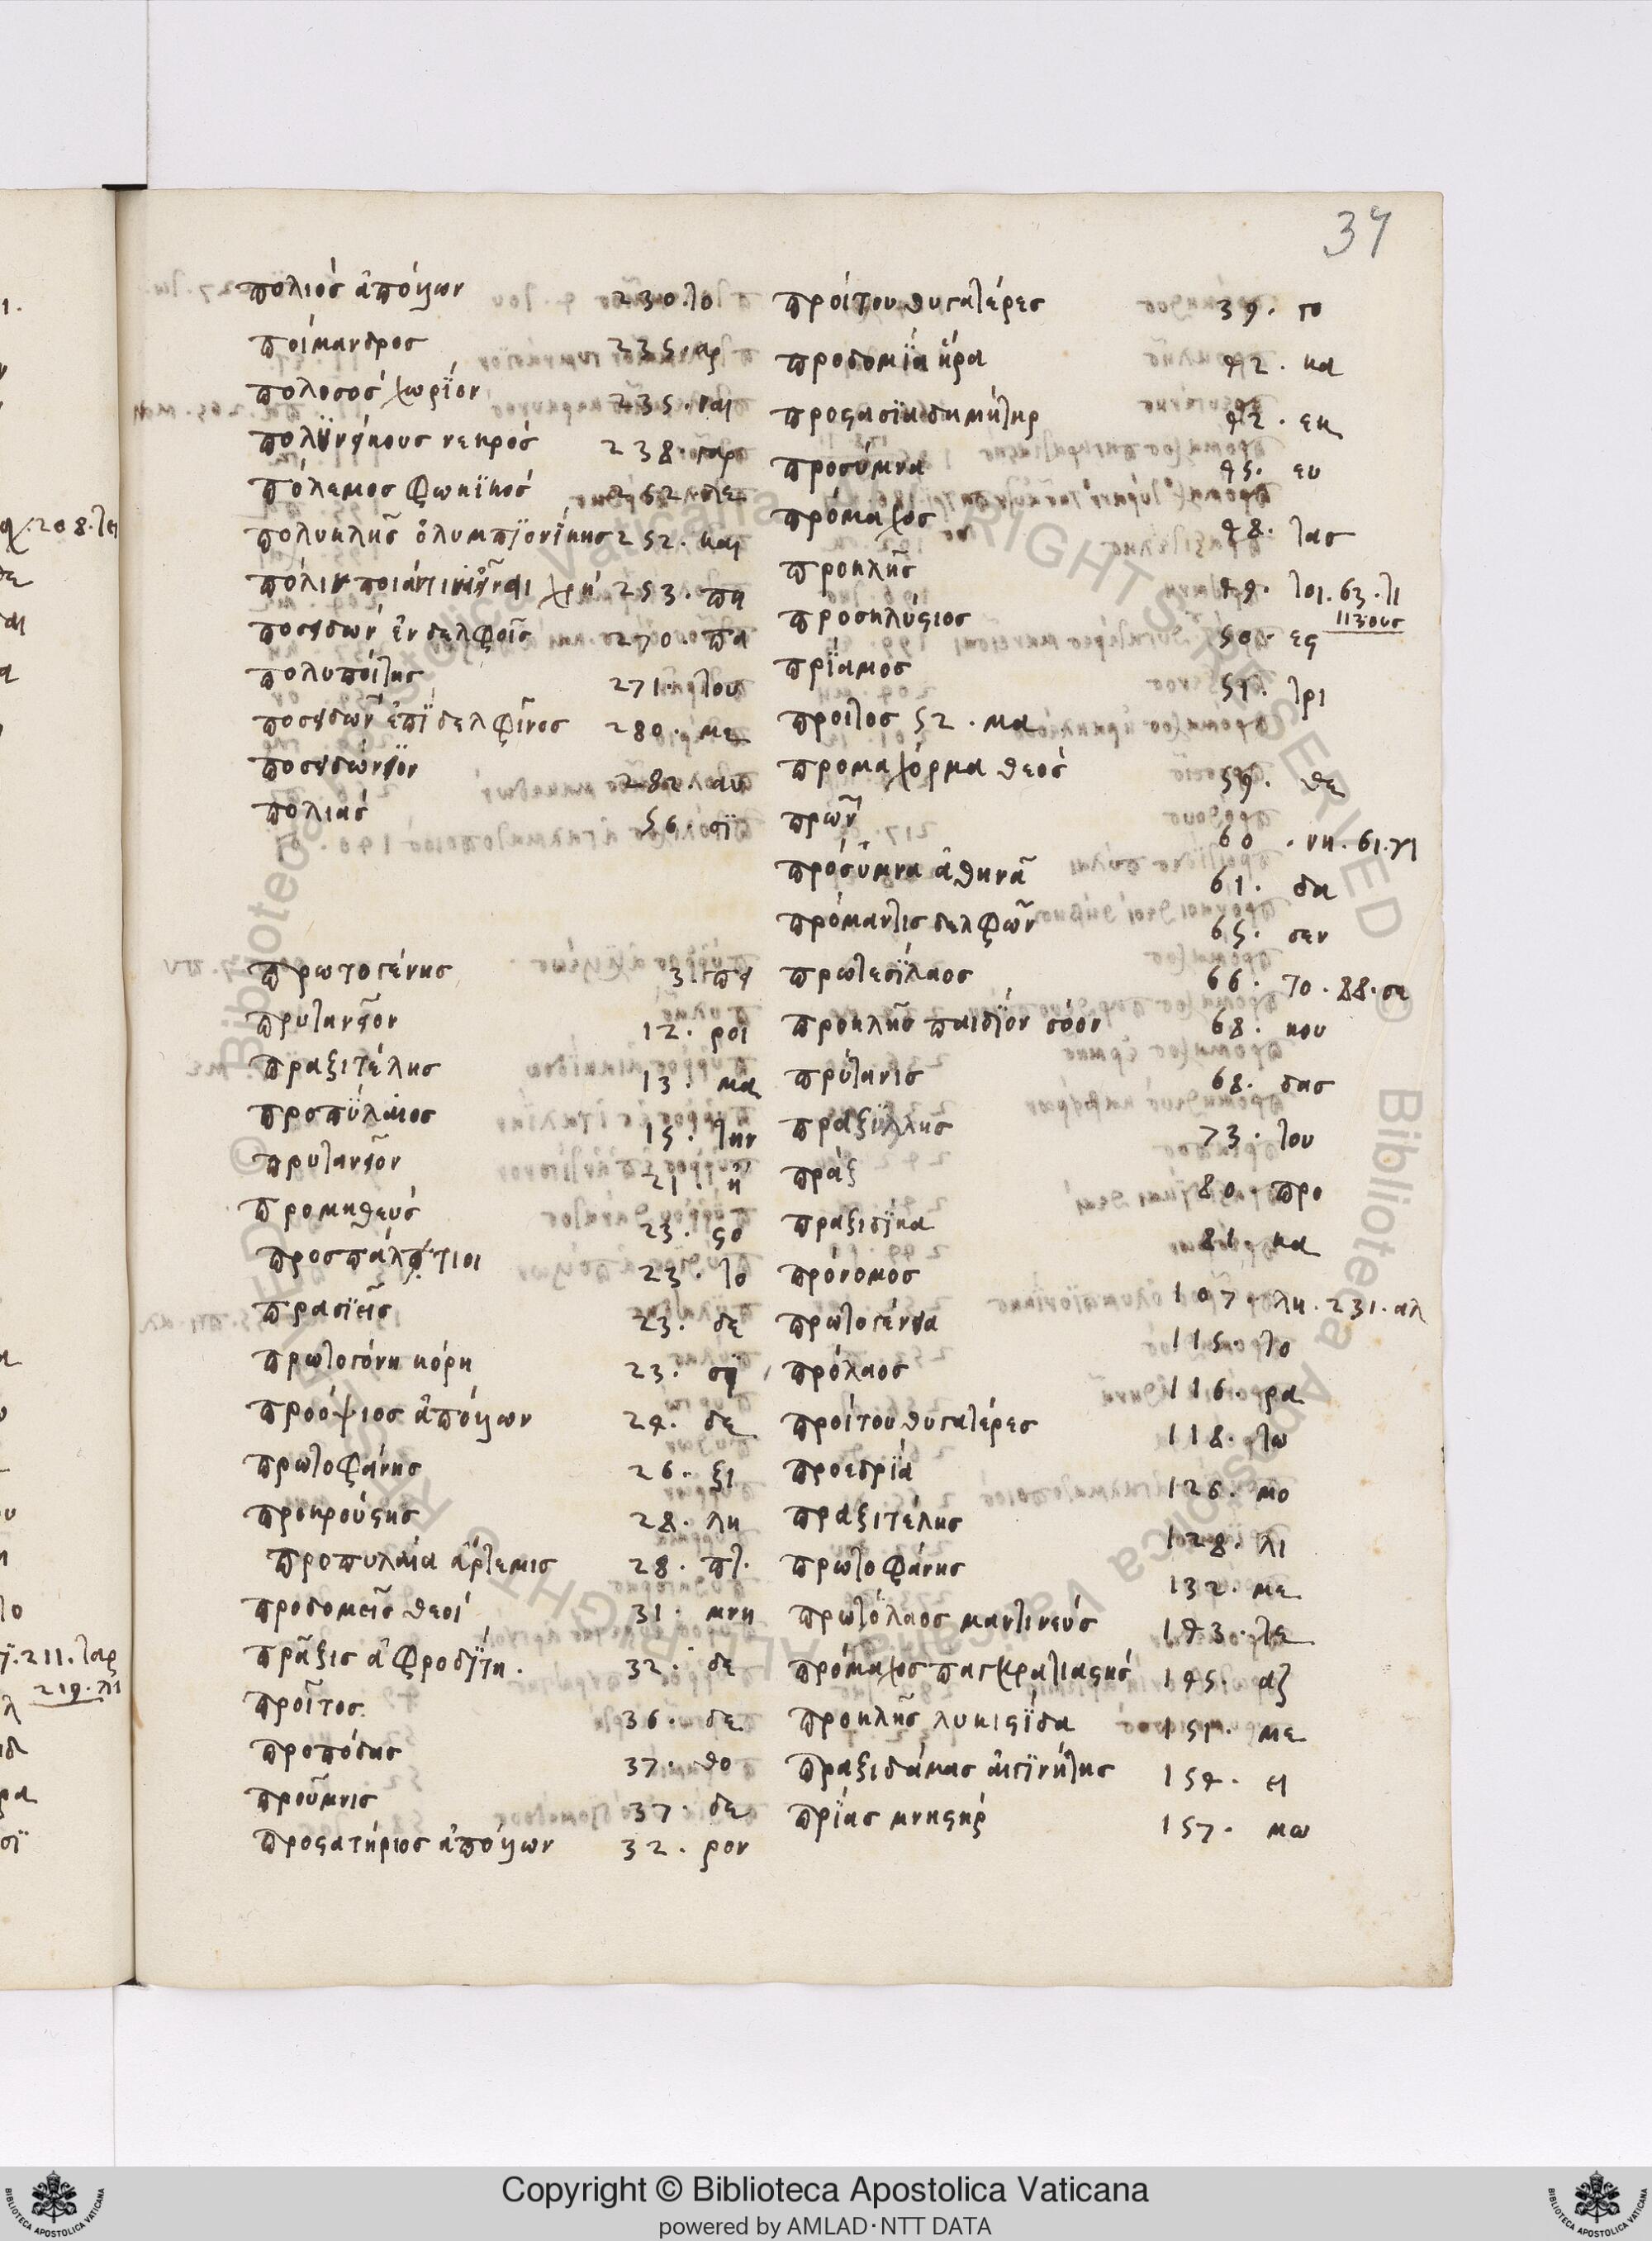 34
πολιὸσ ἀπόλλων 230. το
ποίμανδροσ 235. αρ
πολοσὸσ χωρΐον 235. ναι
πολϋνείκουσ νεκρὸσ 238. γαρ
πόλεμοσ φωκϊκὸσ 252. δε
πολυκλῆσ ὀλυμπϊονίκησ 252. και
253. πη
ποσειδῶν ἐν δελφοῖσ 270. πα
πολυποίτησ 271. του
ποσειδῶν ἐπῒ δελφῖνοσ 280. με
ποσειδώνϊον 282. αυ
πολιάσ 56. σϊ
πρωτογένησ 3. πει
πρυτανεῖον 12. ροι
πραξιτέλησ 13. μα
προπύλαιοσ 15. την
πρυτανεῖον 21. ἡ
προμηθεὺσ 23. στο
προσπάλτιοι 23. το
πρασϊεῖσ 23. δε
πρωτογόνη κόρη 23. σϊ
προόψιοσ ἀπόλλων 24. δε
πρωτοφάνησ 26. ξι
προκρούστησ 28. λη
προπυλαία ἄρτεμισ 28. πτ.
προδομεῖσ θεοί 31. μνη
πρᾶξισ ἀφροδΐτη. 32. δε
προῖτοσ. 36. δε
προπόδησ 37. θο
προῦμνισ 37. δε
προστατήριοσ ἀπόλλων 32. ρον
προίτου θυγατέρεσ 39. το
προδομΐα ἥρα 42. κα
προστασΐα δημήτηρ 42. εκ
προσύμνα 45. ευ
πρόμαχοσ 48. τασ
προκλῆσ 49. τοι. 63. τι
113. ουσ
προσηλύστιοσ 50. εστ
πρΐαμοσ 51. τρι
προιτοσ 52. μα
προμαχόρμα θεὸσ 59. θε
πρὼν 60. νη. 61. γι
πρόσυμνα ἀθηνᾶ 61. δα
πρόμαντισ δελφῶν 65. σεν
πρωτεσΐλαοσ 66. το. 88. σε
προκλῆσ παιδΐον σόον 68. κου
πρύτανισ 68. δασ
πράξιλλησ 73. του
πρὰξ 80. προ
πραξισΐκα 81. κα
πρόνομοσ 107. λη. 231. αλ
πρωτογένεια 115. το
πρόλαοσ 116. ρα
προίτου θυγατέρεσ 118. τω
προεδρΐα 126. μο
πραξιτέλησ 128. λι
πρωτοφάνησ 132. με
πρωτόλαοσ μαντινεὺσ 143. τε
πρόμαχοσ παγκρατιαστὴσ 145. αζ
προκλῆσ λυκιστΐδα 151. με
πραξιδάμασ αἰγϊνήτησ 154. ει
πρΐασ μνηστὴρ 157. μω
Copyright © Biblioteca Apostolica Vaticana
powered by AMLAD·NTT DATA